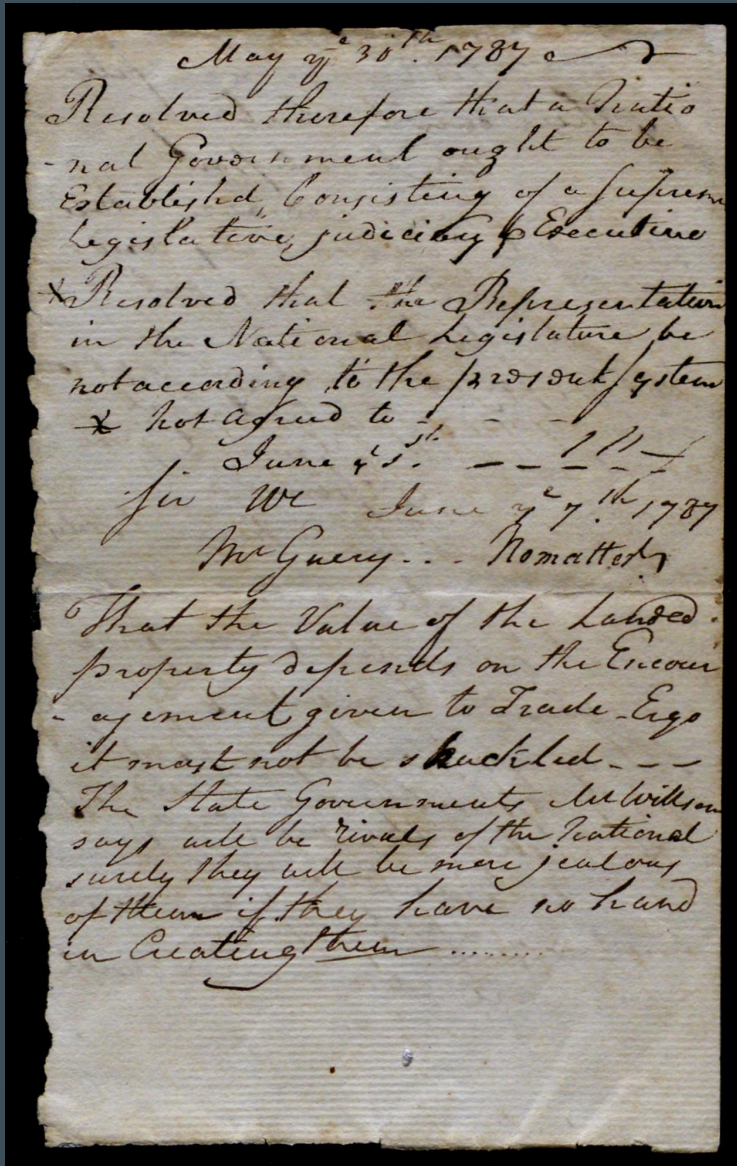 May ye 30th. 1787
Resolved therefore that a Natio
-nal Government ought to be
Established, Consisting of a Supreme
Legislative, judiciary & Executive
Resolved that the Representation
in the National Legislature be
not according to the present system
not agreed to - - -
June ye 1st. - - - -
Sir We June ye 7th 1787
Mr Guery - - - No matter
That the Value of the Landed
property depends on the Encour
-agement given to Trade - Ergo
it must not be shackled - - -
The State Governments Mr Willson
says will be rivals of the National
surely they will be more jealous
of them if they have no hand
in Creating them ........